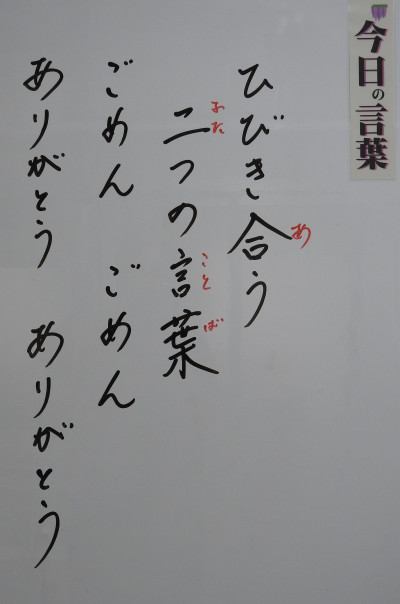 今日の言葉
ひびき合う
あ
二つの言葉
ふた
ことば
ごめん ごめん
ありがとう ありがとう